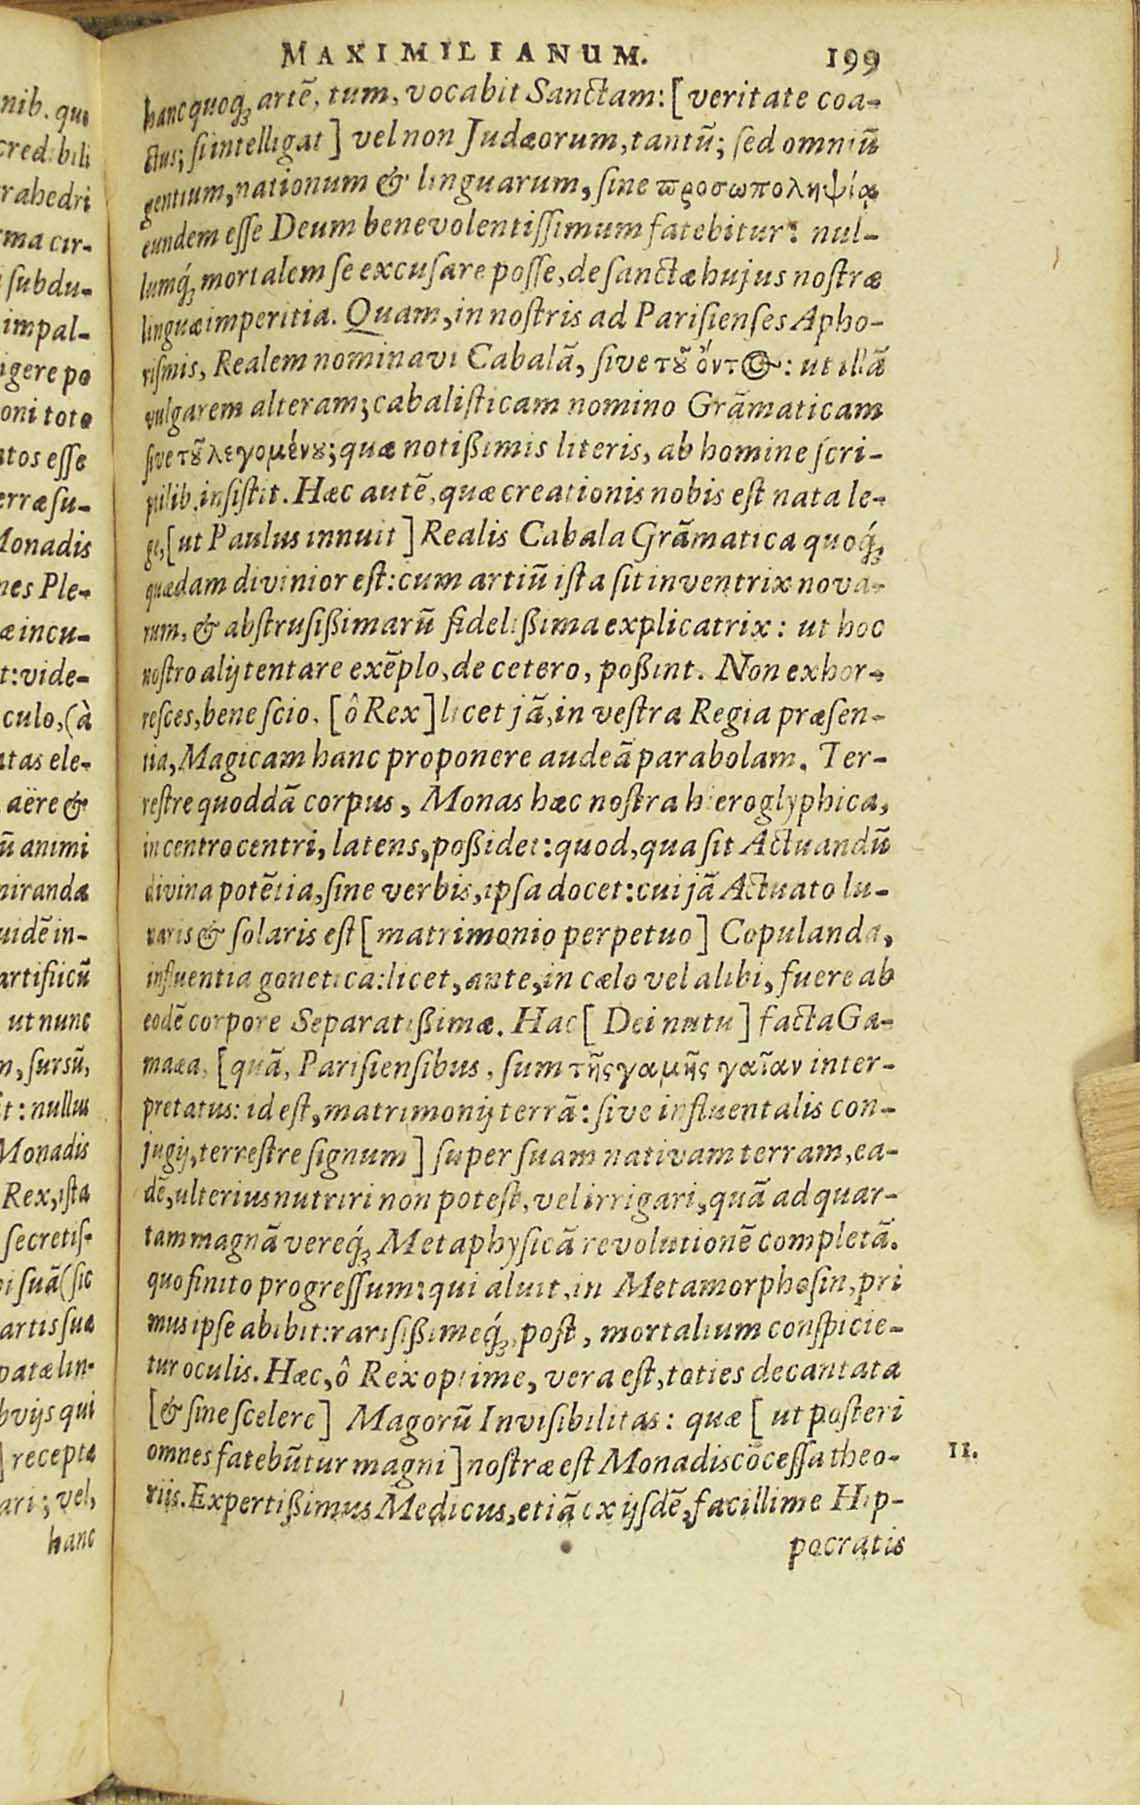 MAXIMILIANUM. 199
hanc quoq́ꝫ artē, tum, vocabit Sanctam: [veritate coa-
ctus; si intelligat] vel non Judæorum, tantū; sed omniū
gentium, nationum & linguarum, sine προσωποληψίᾳ
eundem esse Deum benevolentissimum fatebitur: nul-
lumq́ꝫ mortalem se excusare posse, de sanctæ hujus nostræ
linguæ imperitia. Quam, in nostris ad Parisienses Apho-
rismis, Realem nominavi Cabalā, sive τȣ͂ ὄντ©: ut illā
vulgarem alteram; cabalisticam nomino Grāmaticam
sive τȣ͂ λεγομένȣ; quæ notißimis literis, ab homine scri-
ptilib. insistit. Hæc autē, quæ creationis nobis est nata le-
ge, [ut Paulus innuit] Realis Cabala Grāmatica quoq́ꝫ
quædam divinior est: cum artiū ista sit inventrix nova-
rum, & abstrusißimarū fidelißima explicatrix: ut hoc
nostro alij tentare exēplo, de cetero, poßint. Non exhor-
resces, bene scio, [ô Rex] licet jā, in vestra Regia præsen-
tia, Magicam hanc proponere audeā parabolam. Ter-
restre quoddā corpus, Monas hæc nostra hieroglyphica,
in centro centri, latens, poßidet: quod, qua sit Actuandū
divina potētia, sine verbis, ipsa docet: cui jā Actuato lu-
naris & solaris est [matrimonio perpetuo] Copulanda,
influentia gonetica: licet, ante, in cælo vel alibi, fuere ab
eodē corpore Separatißimæ. Hac [Dei nutu] facta Ga-
maæa, [quā, Parisiensibus, sum τῆς γαμῆς γαῖαν inter-
pretatus: id est, matrimonij terrā: sive influentalis con-
jugij, terrestre signum] super suam nativam terram, ea-
dē, ulterius nutriri non potest, vel irrigari, quā ad quar-
tam magnā vereq́ꝫ Metaphysicā revolutionē completā.
quo finito progressum: qui aluit, in Metamorphosin, pri
mus ipse abibit: rarisißimeq́ꝫ, post, mortalium conspicie-
tur oculis. Hæc, ô Rex optime, vera est, toties decantata
[& sine scelere] Magorū Invisibilitas: quæ [ut posteri
omnes fatebūtur magni] nostræ est Monadis cōcessa theo- 11.
riis. Expertißimus Medicus, etiā ex ijsdē, facillime Hip-
pocratis
nib. quo
credibili
rahedri
ma cir-
subdu-
impal-
igere po
oni toto
tos esse
erræ su-
Monadis
nes Ple-
æ incu-
t: vide-
culo, (à
tas ele-
aëre &
ū animi
miranda
uidē in-
artificiū
ut nunc
m, sursū,
it: nullus
Monadis
Rex, ista
secretis-
i suā (sic
artis suæ
patæ lin-
bvijs qui
] recepta
ari; vel,
hanc